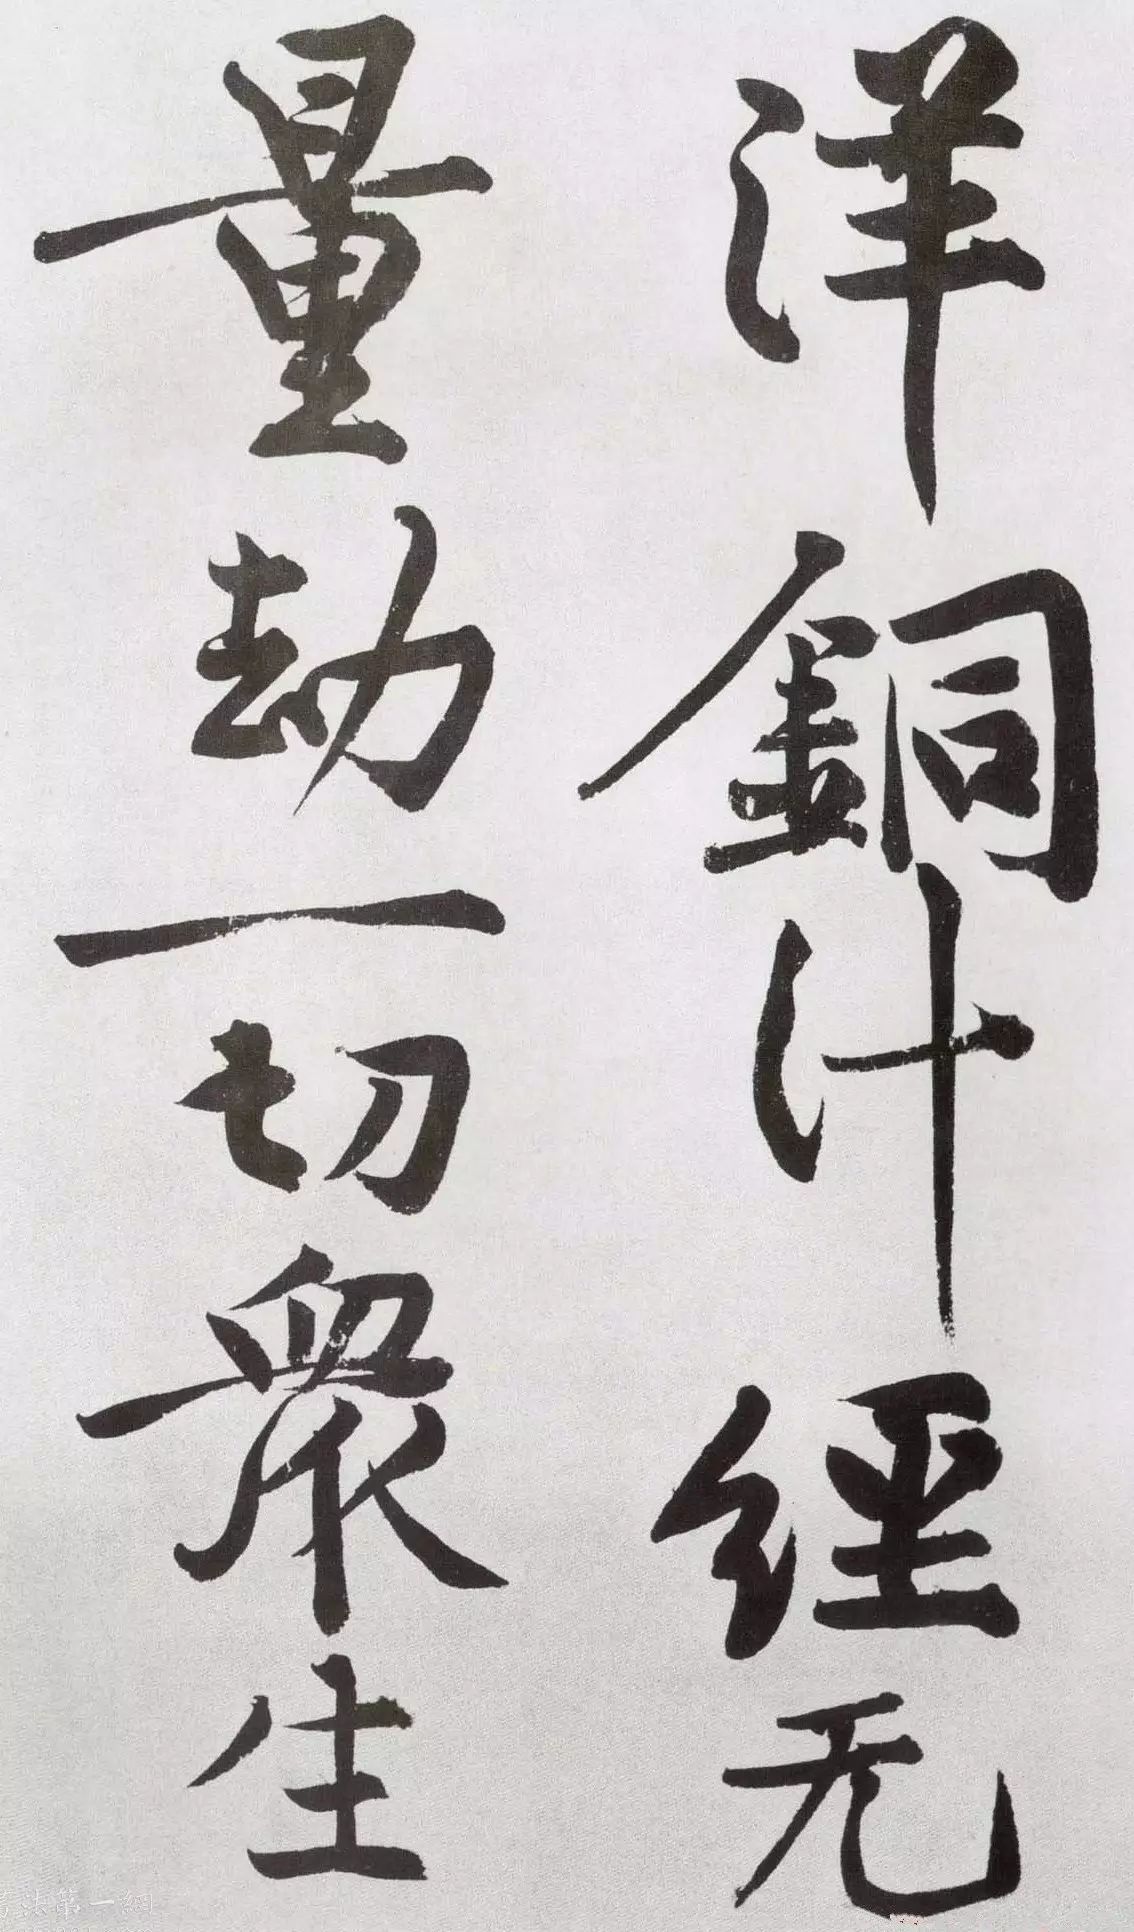 洋銅汁經无
量劫一切衆生
書法第一網